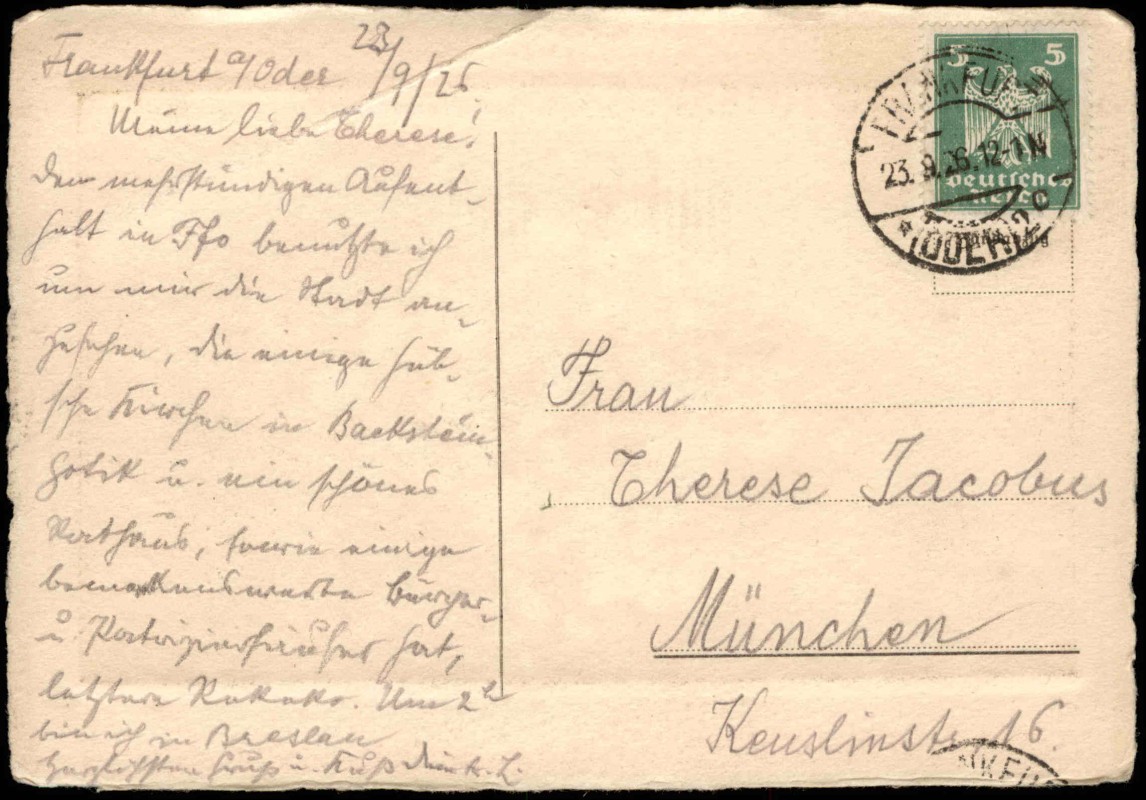 Frankfurt a/Oder 23/9/26
Meine liebe Therese!
Den mehrstündigen Aufent-
halt in Ffo benutzte ich
um mir die Stadt an-
zusehen, die einige hüb-
sche Kirchen in Backstein-
gotik u. ein schönes
Rathaus, sowie einige
bemerkenswerte Bürger-
u. Patrizierhäuser hat,
letztere Rokoko. Um 2h
bin ich in Breslau
Herzlichsten Gruß u. Kuß Dein
5 5
Deutsches
Reich
FRANKFURT
23.9.26.12-1N
c
(ODER)
Frau
Therese Jacobus
München
Keuslinstr. 16.